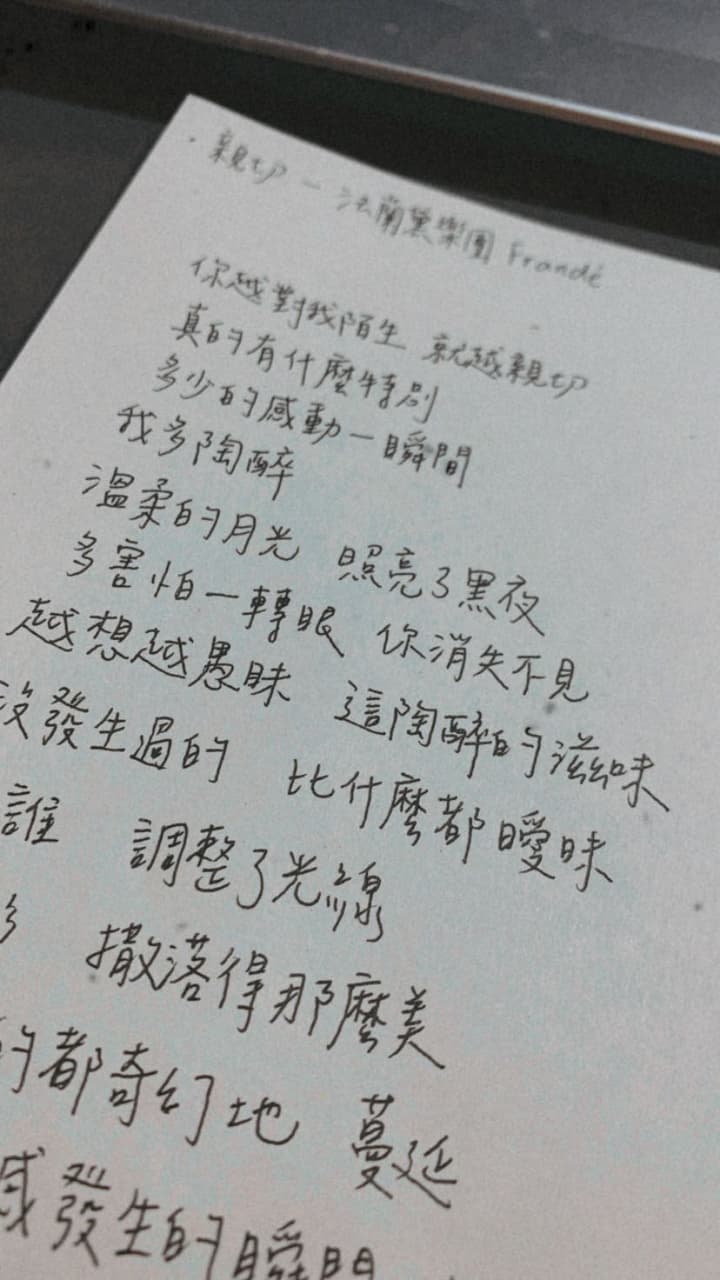 · 親切 — 法蘭黛樂團 Frandé
你越對我陌生 就越親切
真的有什麼特別
多少的感動一瞬間
我多陶醉
溫柔的月光 照亮了黑夜
多害怕一轉眼 你消失不見
越想越愚昧 這陶醉的滋味
沒發生過的 比什麼都曖昧
誰 調整了光線
撒落得那麼美
的都奇幻地 蔓延
感發生的瞬間